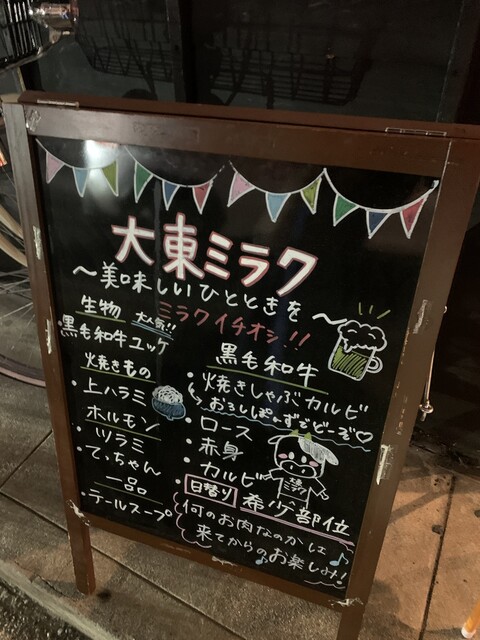 大東ミラク
〜美味しいひとときを〜
ミラクイチオシ!!
生物 大人気!!
・黒毛和牛ユッケ
焼きもの
・上ハラミ
ホルモン
・ツラミ
・てっちゃん
一品
・テールスープ
黒毛和牛
・焼きしゃぶカルビ
おろしぽんずでどーぞ♡
・ロース
・赤身
・カルビ
大東
ミラク
・日替り 希少部位
何のお肉なのかは
来てからのお楽しみ!